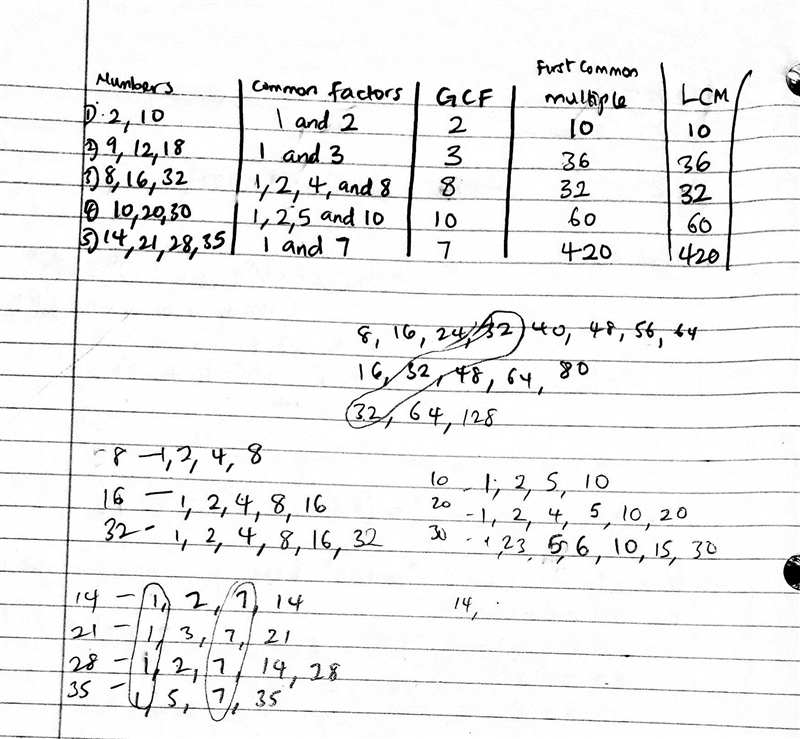 First Common
Numbers Common factors GCF multiple LCM
1) 2, 10 1 and 2 2 10 10
2) 9, 12, 18 1 and 3 3 36 36
3) 8, 16, 32 1, 2, 4, and 8 8 32 32
4) 10, 20, 30 1, 2, 5 and 10 10 60 60
5) 14, 21, 28, 35 1 and 7 7 420 420
8, 16, 24, 32, 40, 48, 56, 64
16, 32, 48, 64, 80
32, 64, 128
8 – 1, 2, 4, 8
16 – 1, 2, 4, 8, 16
32 – 1, 2, 4, 8, 16, 32
10 – 1, 2, 5, 10
20 – 1, 2, 4, 5, 10, 20
30 – 1, 23, 5, 6, 10, 15, 30
14 – 1, 2, 7, 14
21 – 1, 3, 7, 21
28 – 1, 2, 7, 14, 28
35 – 1, 5, 7, 35
14,